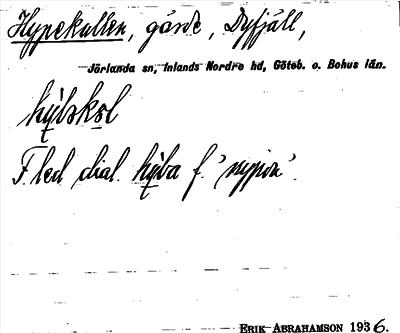 Hypekullen, gärde, Dyfjäll,
Jörlanda sn, Inlands Nordre hd, Göteb. o. Bohus län.
hỳbskəl
F. led dial. hỳba f. 'nypon'.
ERIK ABRAHAMSON 1936.